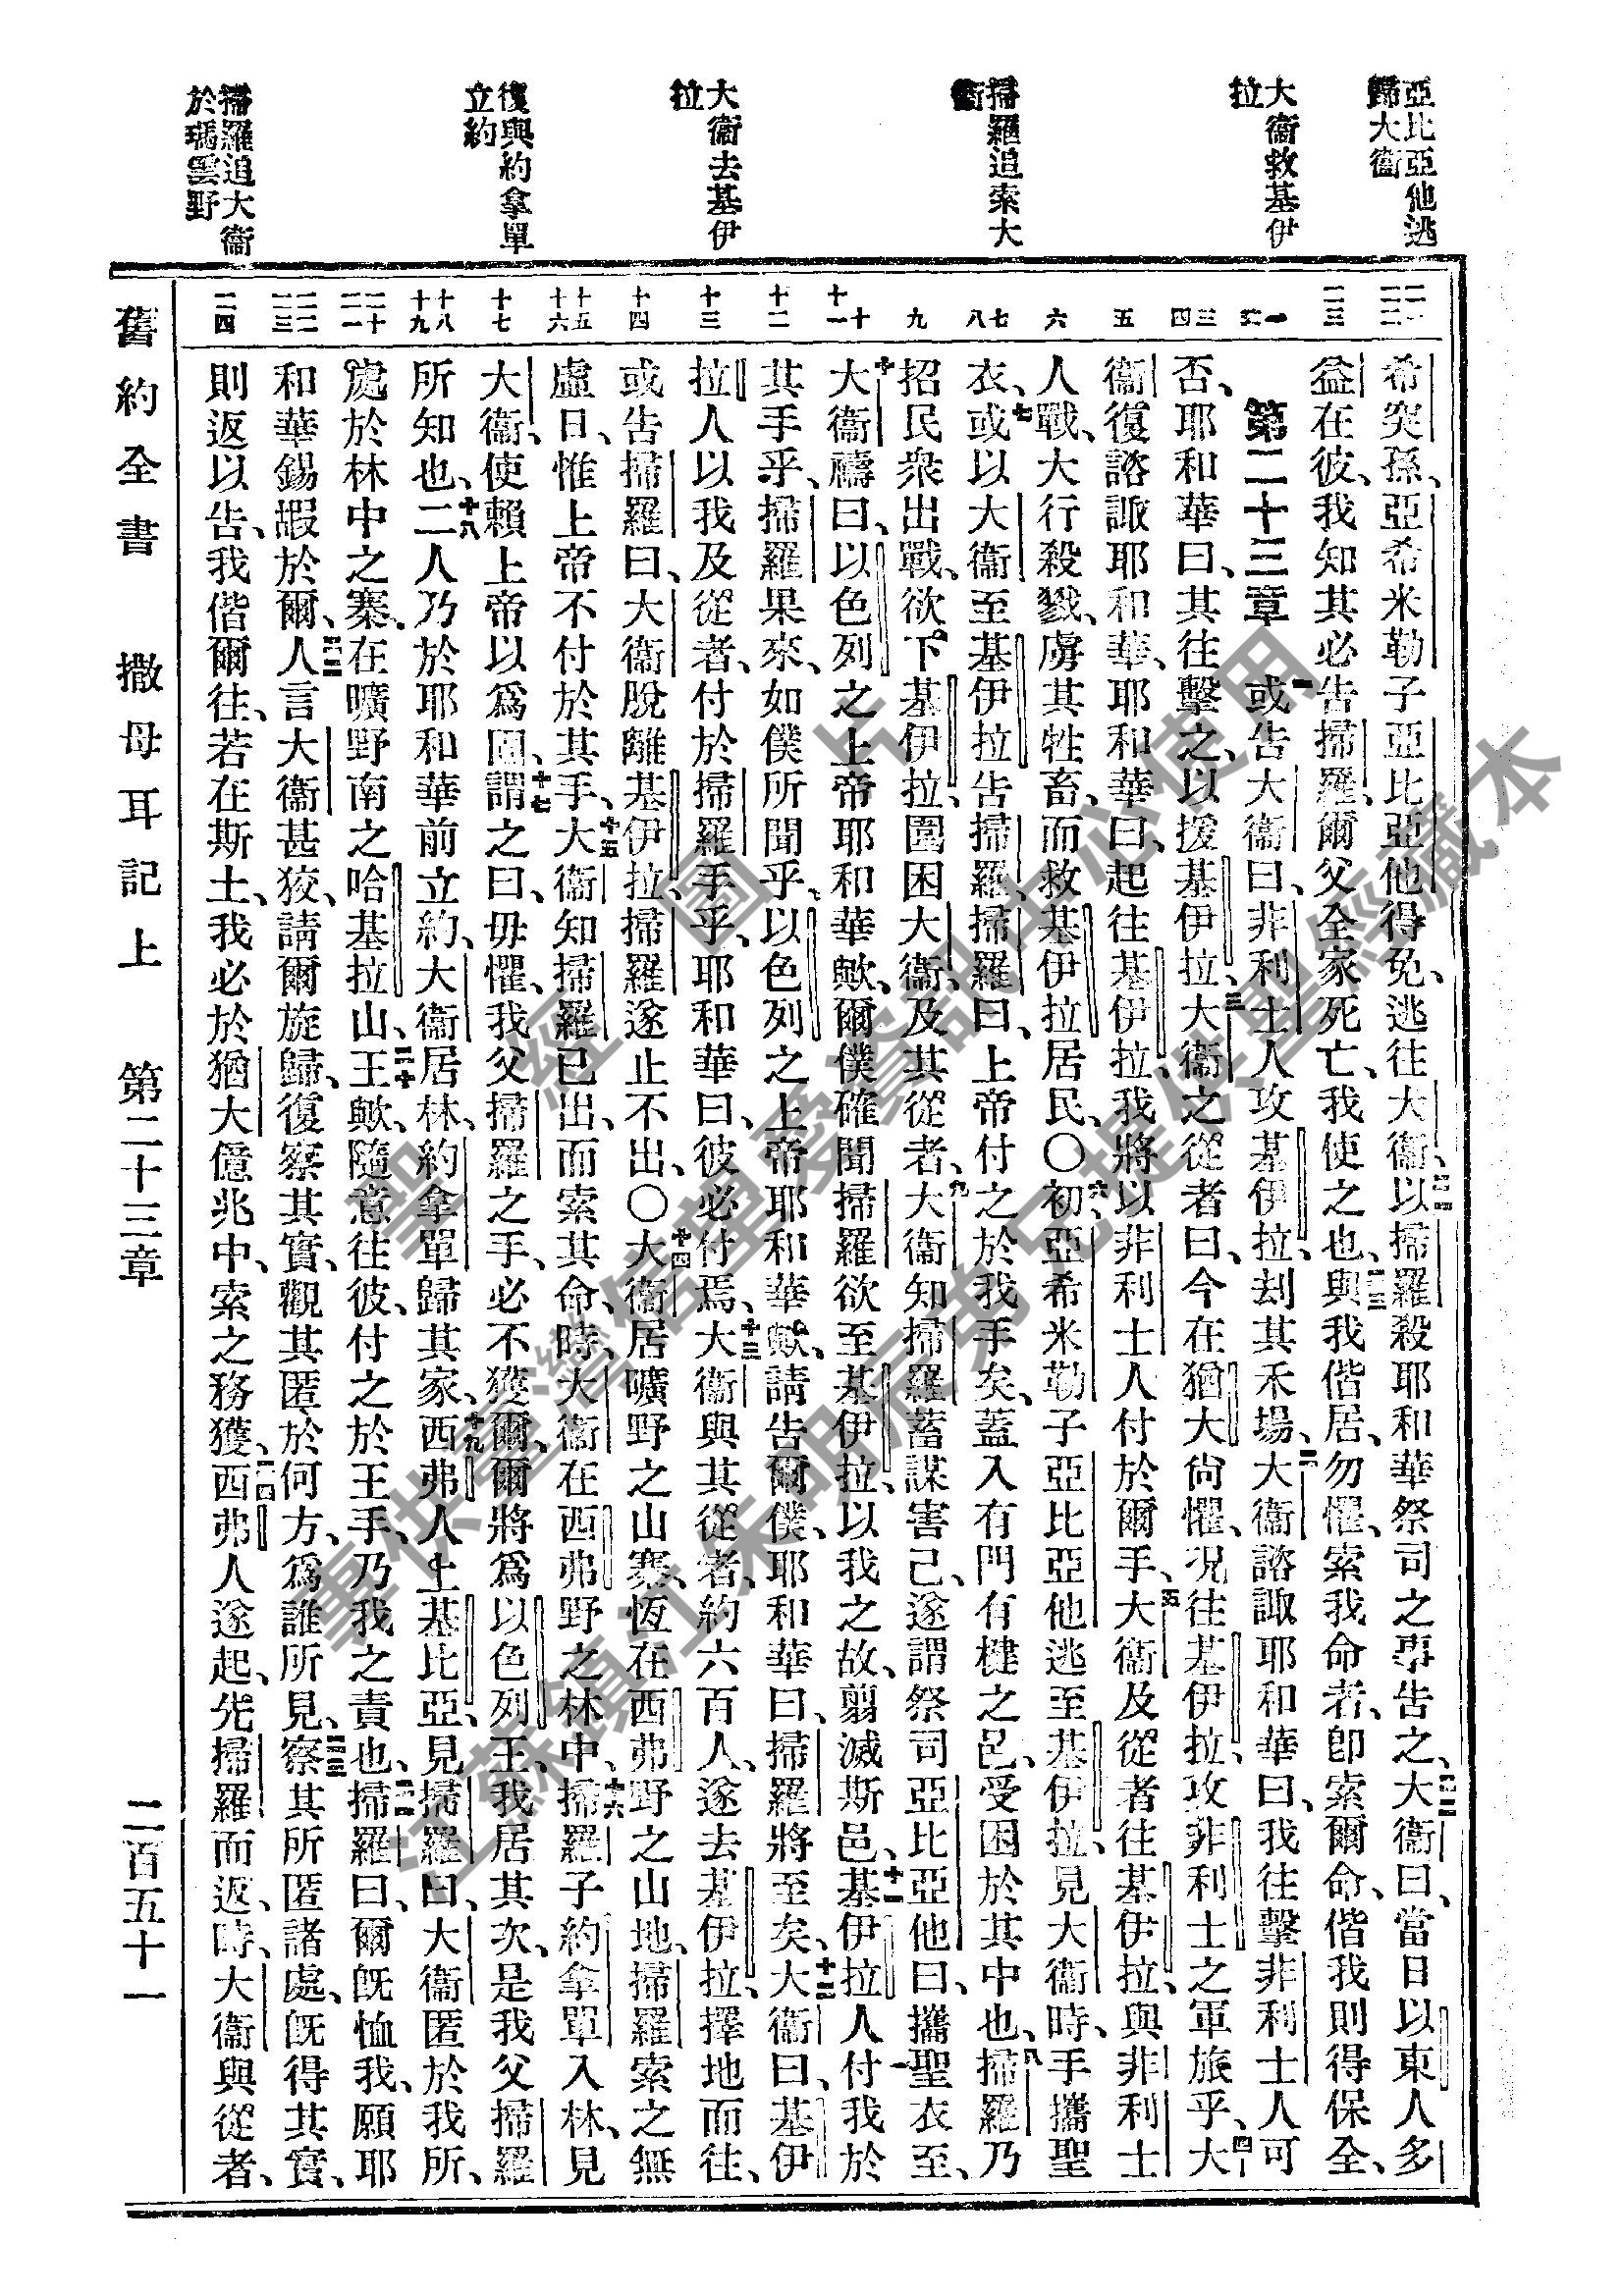 亞比亞他逃
歸大衞
大衞救基伊
拉
掃羅追索大
衞
大衞去基伊
拉
復與約拿單
立約
掃羅追大衞
於瑪雲野
希突孫、亞希米勒子亞比亞他得免、逃往大衞、二一以掃羅殺耶和華祭司之事告之、二二大衞曰、當日以東人多
益在彼、我知其必告掃羅、爾父全家死亡、我使之也、二三與我偕居、勿懼、索我命者、卽索爾命、偕我則得保全、
第二十三章 一或告大衞曰、非利士人攻基伊拉、刦其禾場、二大衞諮諏耶和華曰、我往擊非利士人可
否、耶和華曰、其往擊之、以援基伊拉、三大衞之從者曰、今在猶大尙懼、況往基伊拉、攻非利士之軍旅乎、四大
衞復諮諏耶和華、耶和華曰、起往基伊拉、我將以非利士人付於爾手、五大衞及從者往基伊拉、與非利士
人戰、大行殺戮、虜其牲畜、而救基伊拉居民、〇六初、亞希米勒子亞比亞他逃至基伊拉、見大衞時、手攜聖
衣、七或以大衞至基伊拉告掃羅、掃羅曰、上帝付之於我手矣、蓋入有門有楗之邑、受困於其中也、八掃羅乃
招民衆出戰、欲下基伊拉、圍困大衞、及其從者、九大衞知掃羅蓄謀害己、遂謂祭司亞比亞他曰、攜聖衣至、
十大衞禱曰、以色列之上帝耶和華歟、爾僕確聞掃羅欲至基伊拉、以我之故、翦滅斯邑、十一基伊拉人付我於
其手乎、掃羅果來、如僕所聞乎、以色列之上帝耶和華歟、請告爾僕、耶和華曰、掃羅將至矣、十二大衞曰、基伊
拉人以我及從者、付於掃羅手乎、耶和華曰、彼必付焉、十三大衞與其從者、約六百人、遂去基伊拉、擇地而往、
或告掃羅曰、大衞脫離基伊拉、掃羅遂止不出、〇十四大衞居曠野之山寨、恆在西弗野之山地、掃羅索之無
虛日、惟上帝不付於其手、十五大衞知掃羅已出、而索其命、時、大衞在西弗野之林中、十六掃羅子約拿單入林、見
大衞、使賴上帝以爲固、十七謂之曰、毋懼、我父掃羅之手、必不獲爾、爾將爲以色列王、我居其次、是我父掃羅
所知也、十八二人乃於耶和華前立約、大衞居林、約拿單歸其家、十九西弗人上基比亞、見掃羅曰、大衞匿於我所、
處於林中之寨、在曠野南之哈基拉山、二十王歟、隨意往彼、付之於王手、乃我之責也、二一掃羅曰、爾旣恤我、願耶
和華錫嘏於爾、二二人言大衞甚狡、請爾旋歸、復察其實、觀其匿於何方、爲誰所見、二三察其所匿諸處、旣得其實、
則返以告、我偕爾往、若在斯土、我必於猶大億兆中、索之務獲、二四西弗人遂起、先掃羅而返、時、大衞與從者、
舊約全書 撒母耳記上 第二十三章 二百五十一
聖經圖片
專供臺灣信望愛資訊中心使用
江蘇鎮江朱明辰弟兄提供聖經藏本